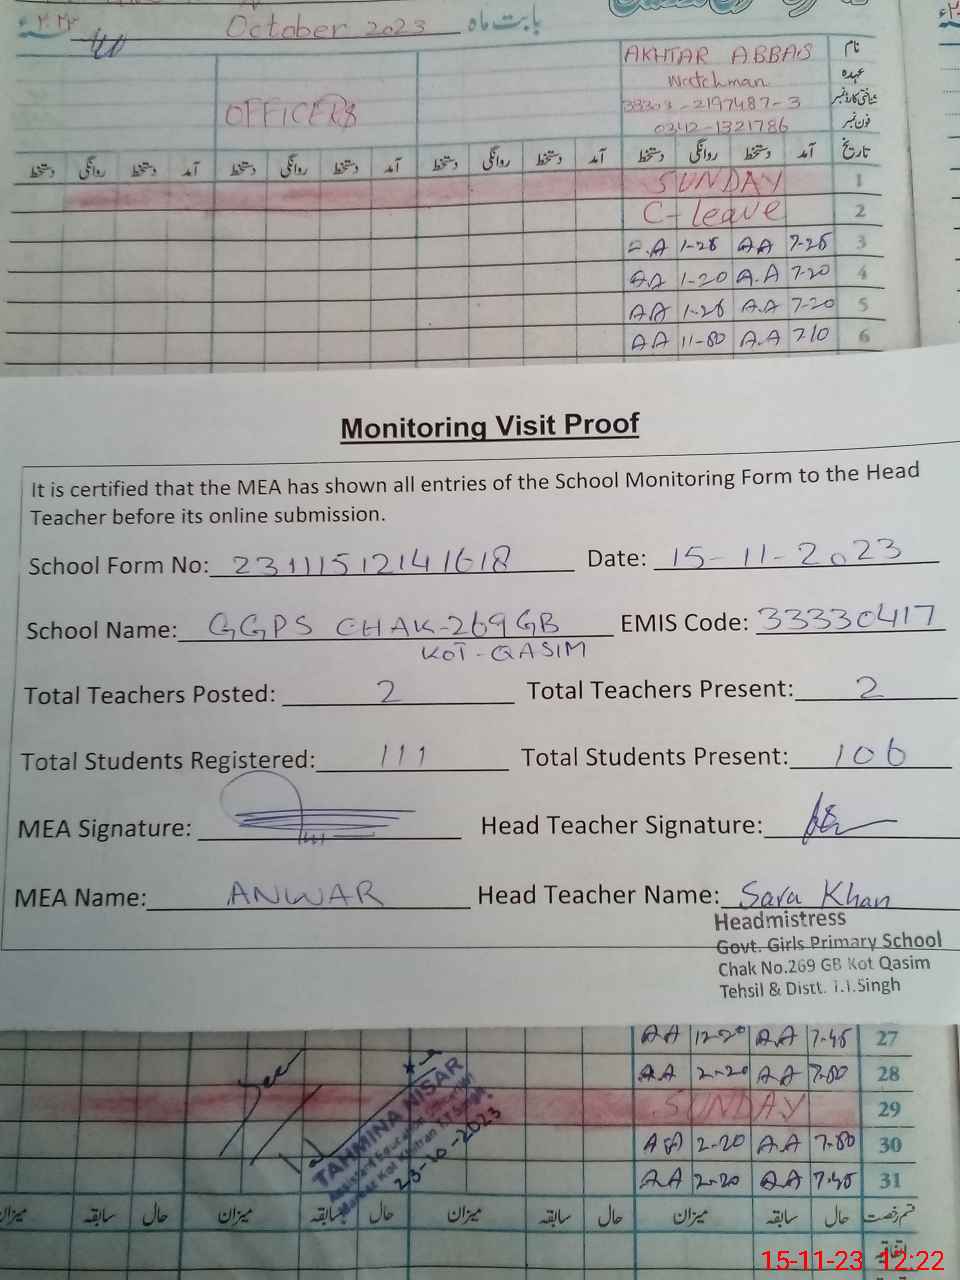 October 2023 بابت ماہ
AKHTAR ABBAS نام
Watchman عہدہ
OFFICERS 33303-2197487-3 شناختی کارڈ نمبر
0342-1321786 فون نمبر
دستخط روانگی دستخط آمد دستخط روانگی دستخط آمد دستخط روانگی دستخط آمد دستخط روانگی دستخط آمد تاریخ
SUNDAY 1
C-leave 2
A.A 1-25 AA 7-25 3
AA 1-20 A.A 7-20 4
AA 1-25 A.A 7-20 5
AA 11-80 A.A 7-10 6
Monitoring Visit Proof
It is certified that the MEA has shown all entries of the School Monitoring Form to the Head
Teacher before its online submission.
School Form No: 23111512141618 Date: 15-11-2023
School Name: GGPS CHAK-269GB EMIS Code: 33330417
KOT-QASIM
Total Teachers Posted: 2 Total Teachers Present: 2
Total Students Registered: 111 Total Students Present: 106
MEA Signature: Head Teacher Signature:
MEA Name: ANWAR Head Teacher Name: Sara Khan
Headmistress
Govt. Girls Primary School
Chak No.269 GB Kot Qasim
Tehsil & Distt. T.T.Singh
AA 12-20 AA 7-45 27
AA 2-20 AA 7-80 28
SUNDAY 29
AA 2-20 AA 7-80 30
AA 2-20 AA 7-45 31
TAHMINA NISAR
23-10-2023
میزان سابقہ حال میزان سابقہ حال میزان سابقہ حال میزان سابقہ حال قسم رخصت
اتفاقیہ
15-11-23 12:22